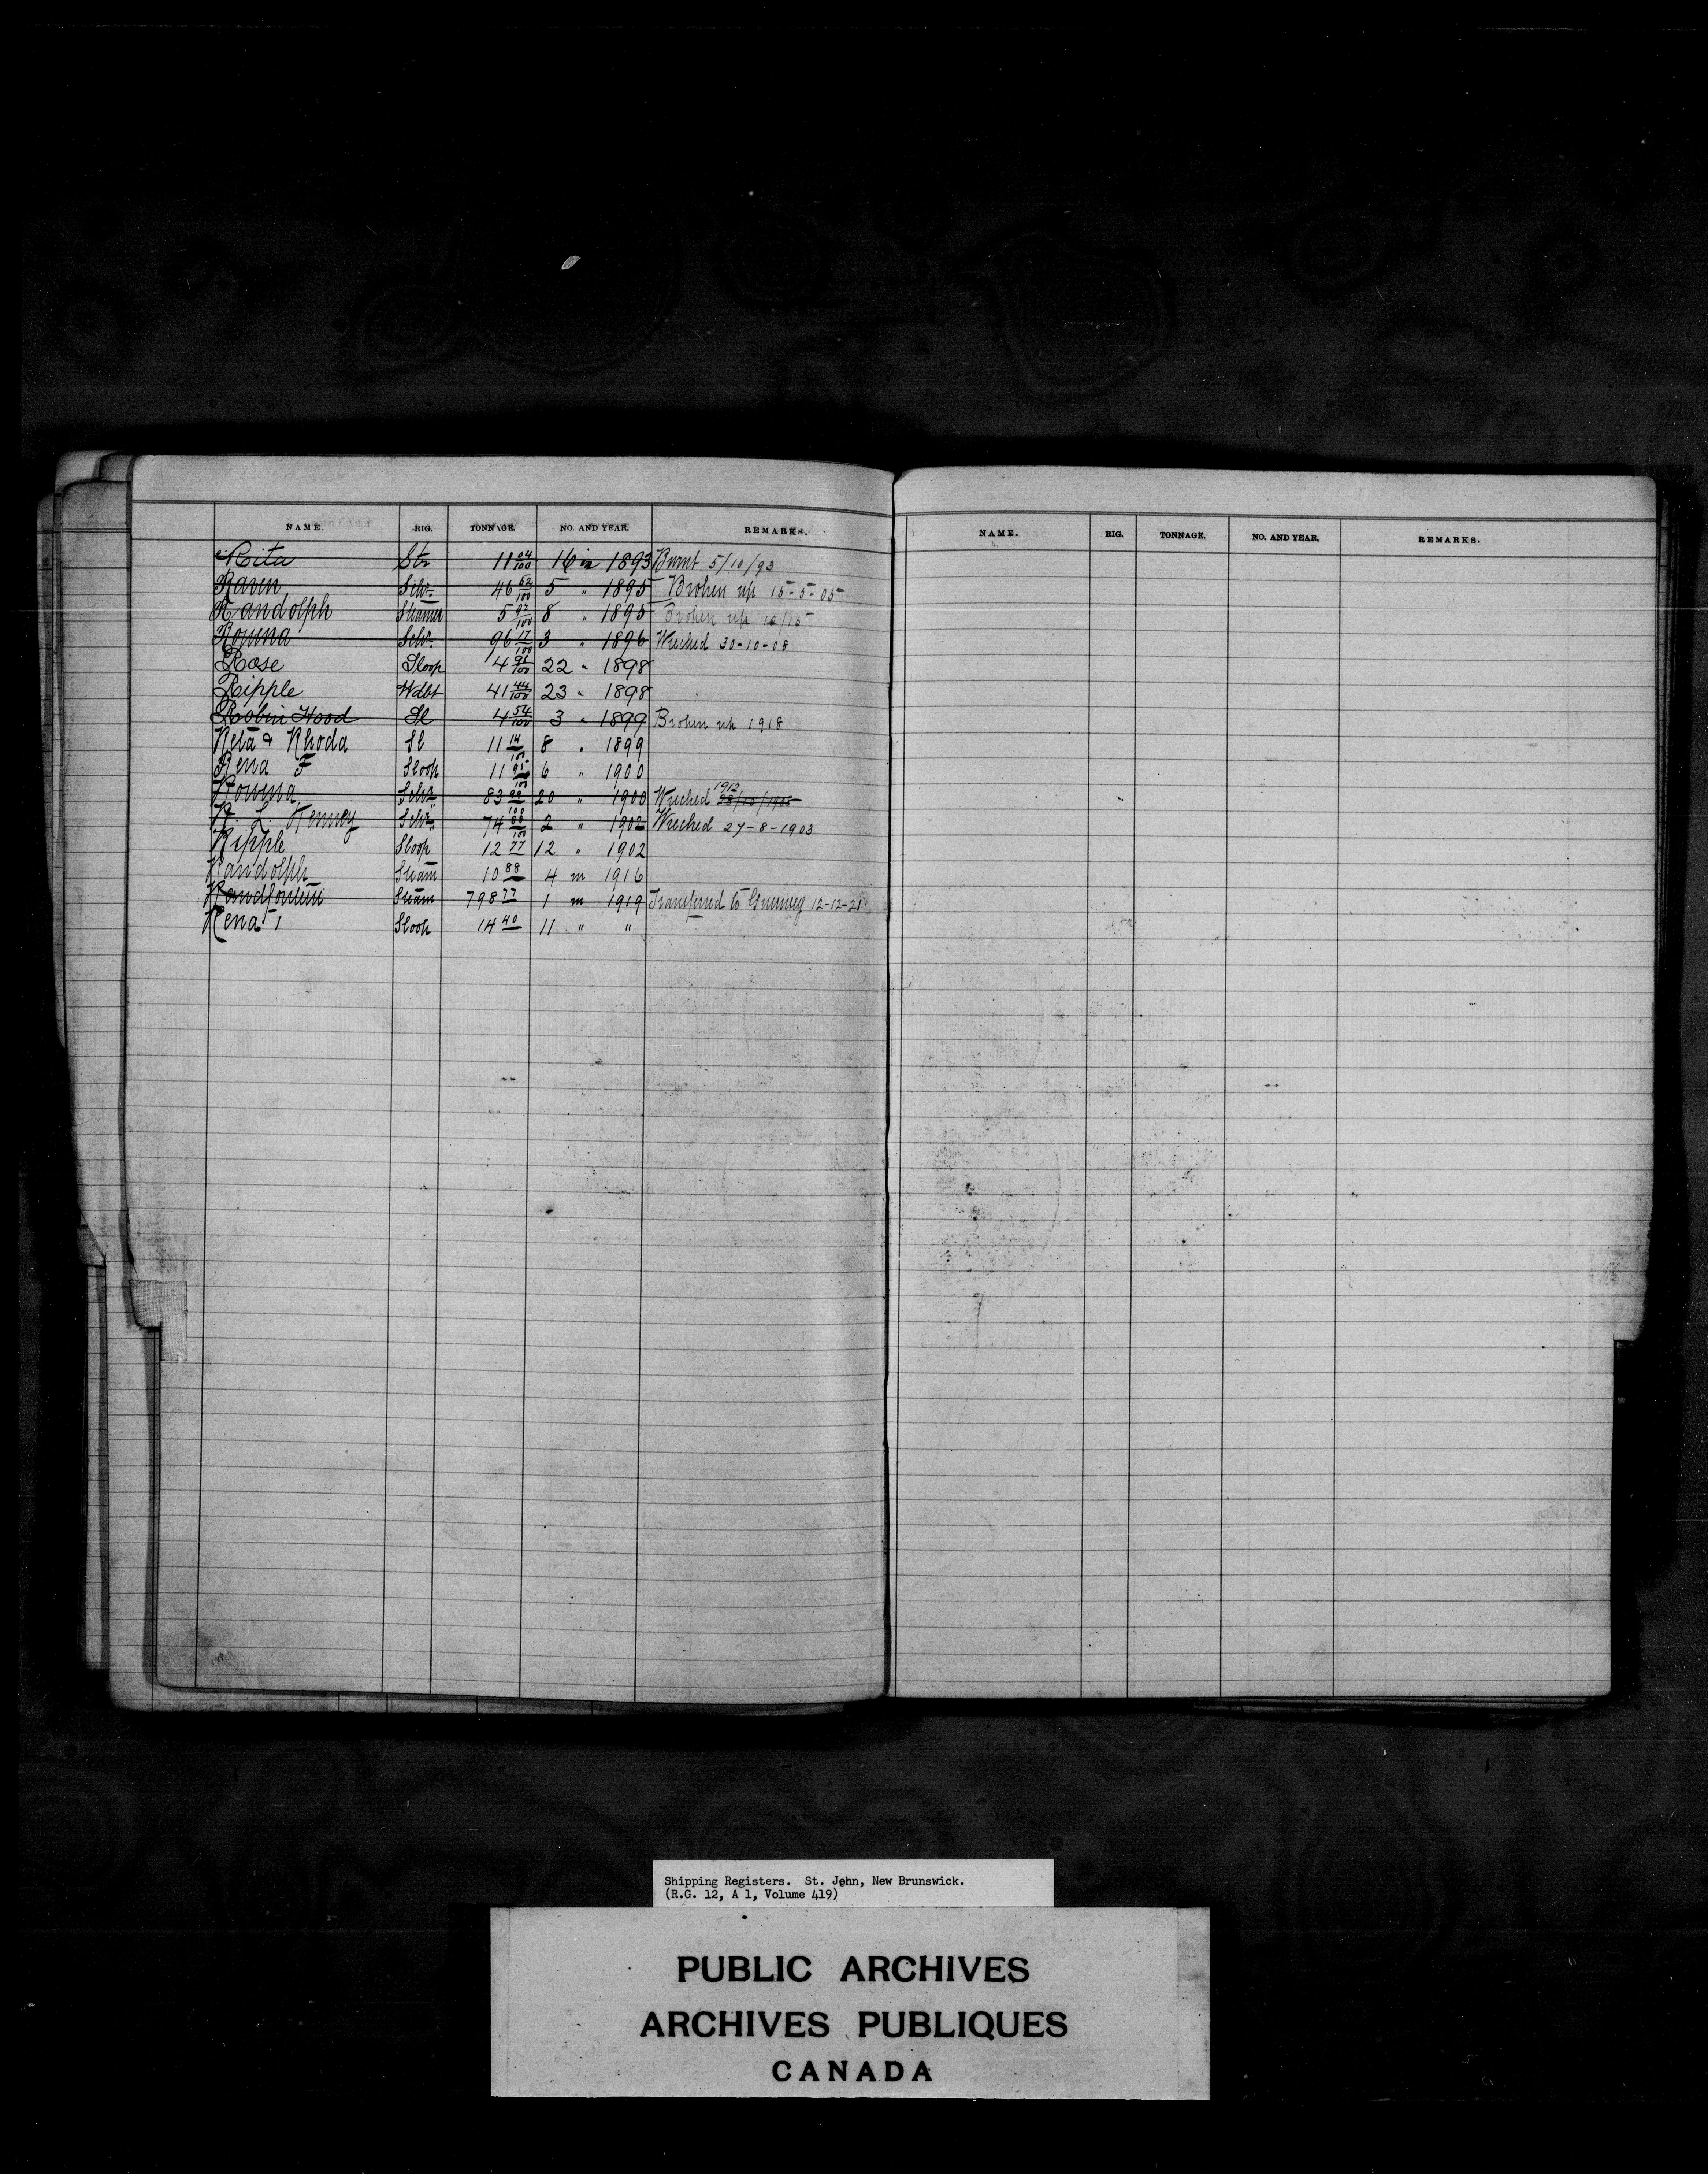 NAME. RIG. TONNAGE. NO. AND YEAR. REMARKS.
Rita Str 11 24/100 16 in 1893 Burnt 5/10/93
Raven Schr 46 62/100 5 " 1895 Broken up 15-5-05
Randolph Steamer 5 97/100 8 " 1895 Broken up 10/15
Rowena Schr 96 17/100 3 " 1896 Wrecked 30-10-08
Rose Sloop 4 91/100 22 " 1898
Ripple Wdbt 41 44/100 23 " 1898
Robin Hood Sl 4 54/100 3 " 1899 Broken up 1918
Reta & Rhoda Sl 11 14/100 8 " 1899
Rena F Sloop 11 95/100 6 " 1900
Rowena Schr 83 99/100 20 " 1900 Wrecked 1912
R. L. Kenney Schr 74 88/100 2 " 1902 Wrecked 27-8-1903
Ripple Sloop 12 77 12 " 1902
Randolph Steam 10 88 4 in 1916
Randfontein Steam 798 77 1 in 1919 Transferred to Guernsey 12-12-21
Rena 1 Sloop 14 40 11 " "
NAME. RIG. TONNAGE. NO. AND YEAR. REMARKS.
Shipping Registers. St. John, New Brunswick.
(R.G. 12, A 1, Volume 419)
PUBLIC ARCHIVES
ARCHIVES PUBLIQUES
CANADA